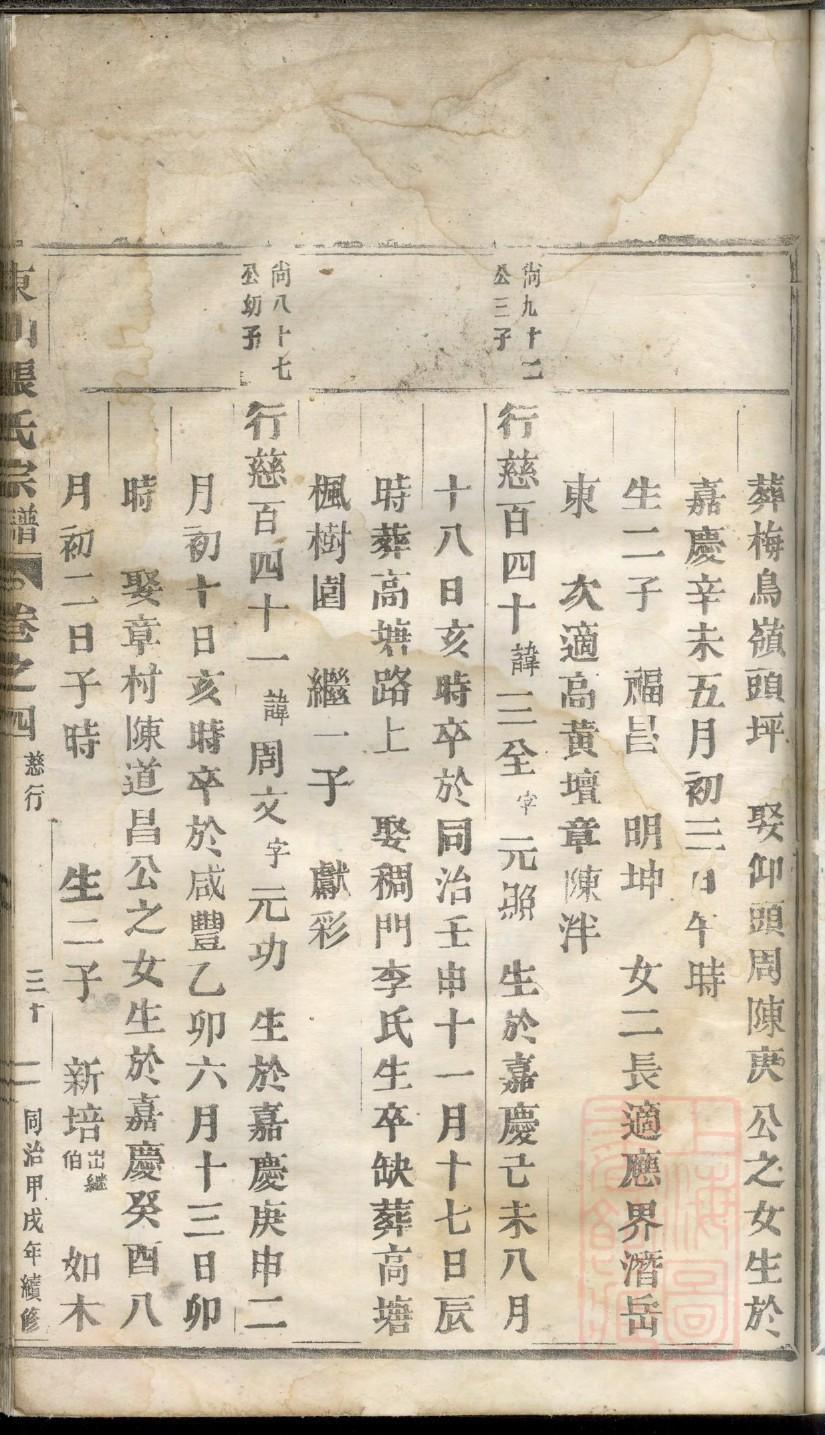 葬梅鳥嶺頭坪　娶仰頭周陳庚公之女生於
嘉慶辛未五月初三日午時
生二子　福昌　明坤　女二長適應界潛岳
東　次適高黃壇章陳泮
尙九十二
公三子
行慈百四十諱三全字元照　生於嘉慶己未八月
十八日亥時卒於同治壬申十一月十七日辰
時葬高塘路上　娶稠門李氏生卒缺葬高塘
楓樹園　繼一子　獻彩
尙八十七
公幼子
行慈百四十一諱周文字元功　生於嘉慶庚申二
月初十日亥時卒於咸豐乙卯六月十三日卯
時　娶章村陳道昌公之女生於嘉慶癸酉八
月初二日子時　生二子　新培出繼伯　如木
東山張氏宗譜　卷之四　慈行　三十二　同治甲戌年續修
上海圖